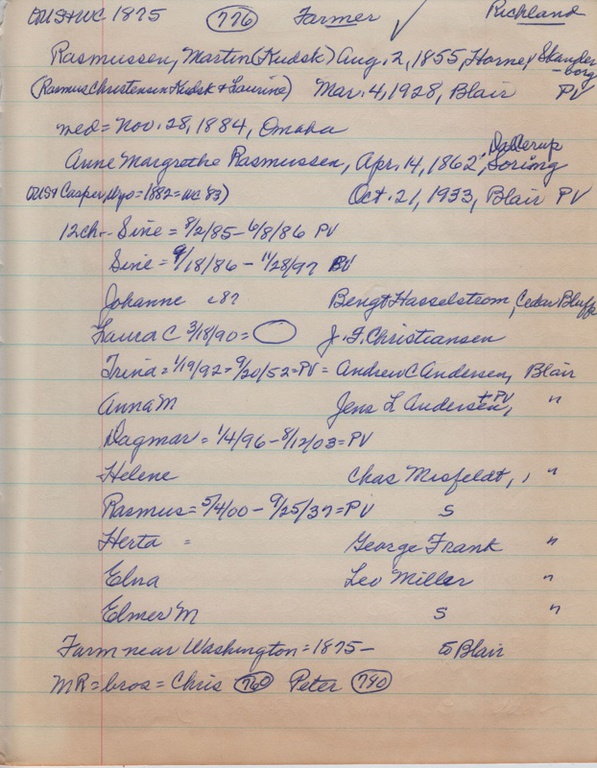 OUS+WC 1875 776 Farmer ✓ Richland
Rasmussen, Martin (Kudsk) Aug. 2, 1855, Horne, Skander-borg
(Rasmus Christensen Kudsk + Laurine) Mar. 4, 1928, Blair PV
med = Nov. 28, 1884, Omaha
Anne Margrethe Rasmussen, Apr. 14, 1862, Dallerup, Soring
(OUS+ Casper, Wyo = 1882 = WC 83) Oct. 21, 1933, Blair PV
12 ch - Sine = 8/2/85 - 6/8/86 PV
Sine = 9/18/86 - 11/28/97 BV
Johanne c87 Bengt Hasselstrom, Cedar Bluffs
Laura C 3/18/90 = J. F. Christiansen
Trina = 1/19/92 = 9/20/52 = PV = Andrew C Andersen, Blair
Anna M Jens L Andersen, + PV "
Dagmar = 1/4/96 - 8/12/03 = PV
Helene Chas Misfeldt, , "
Rasmus = 5/4/00 - 9/25/37 = PV S
Herta = George Frank "
Elna Leo Miller "
Elmer M S "
Farm near Washington = 1875 - to Blair
MR = bros = Chris 760 Peter 740